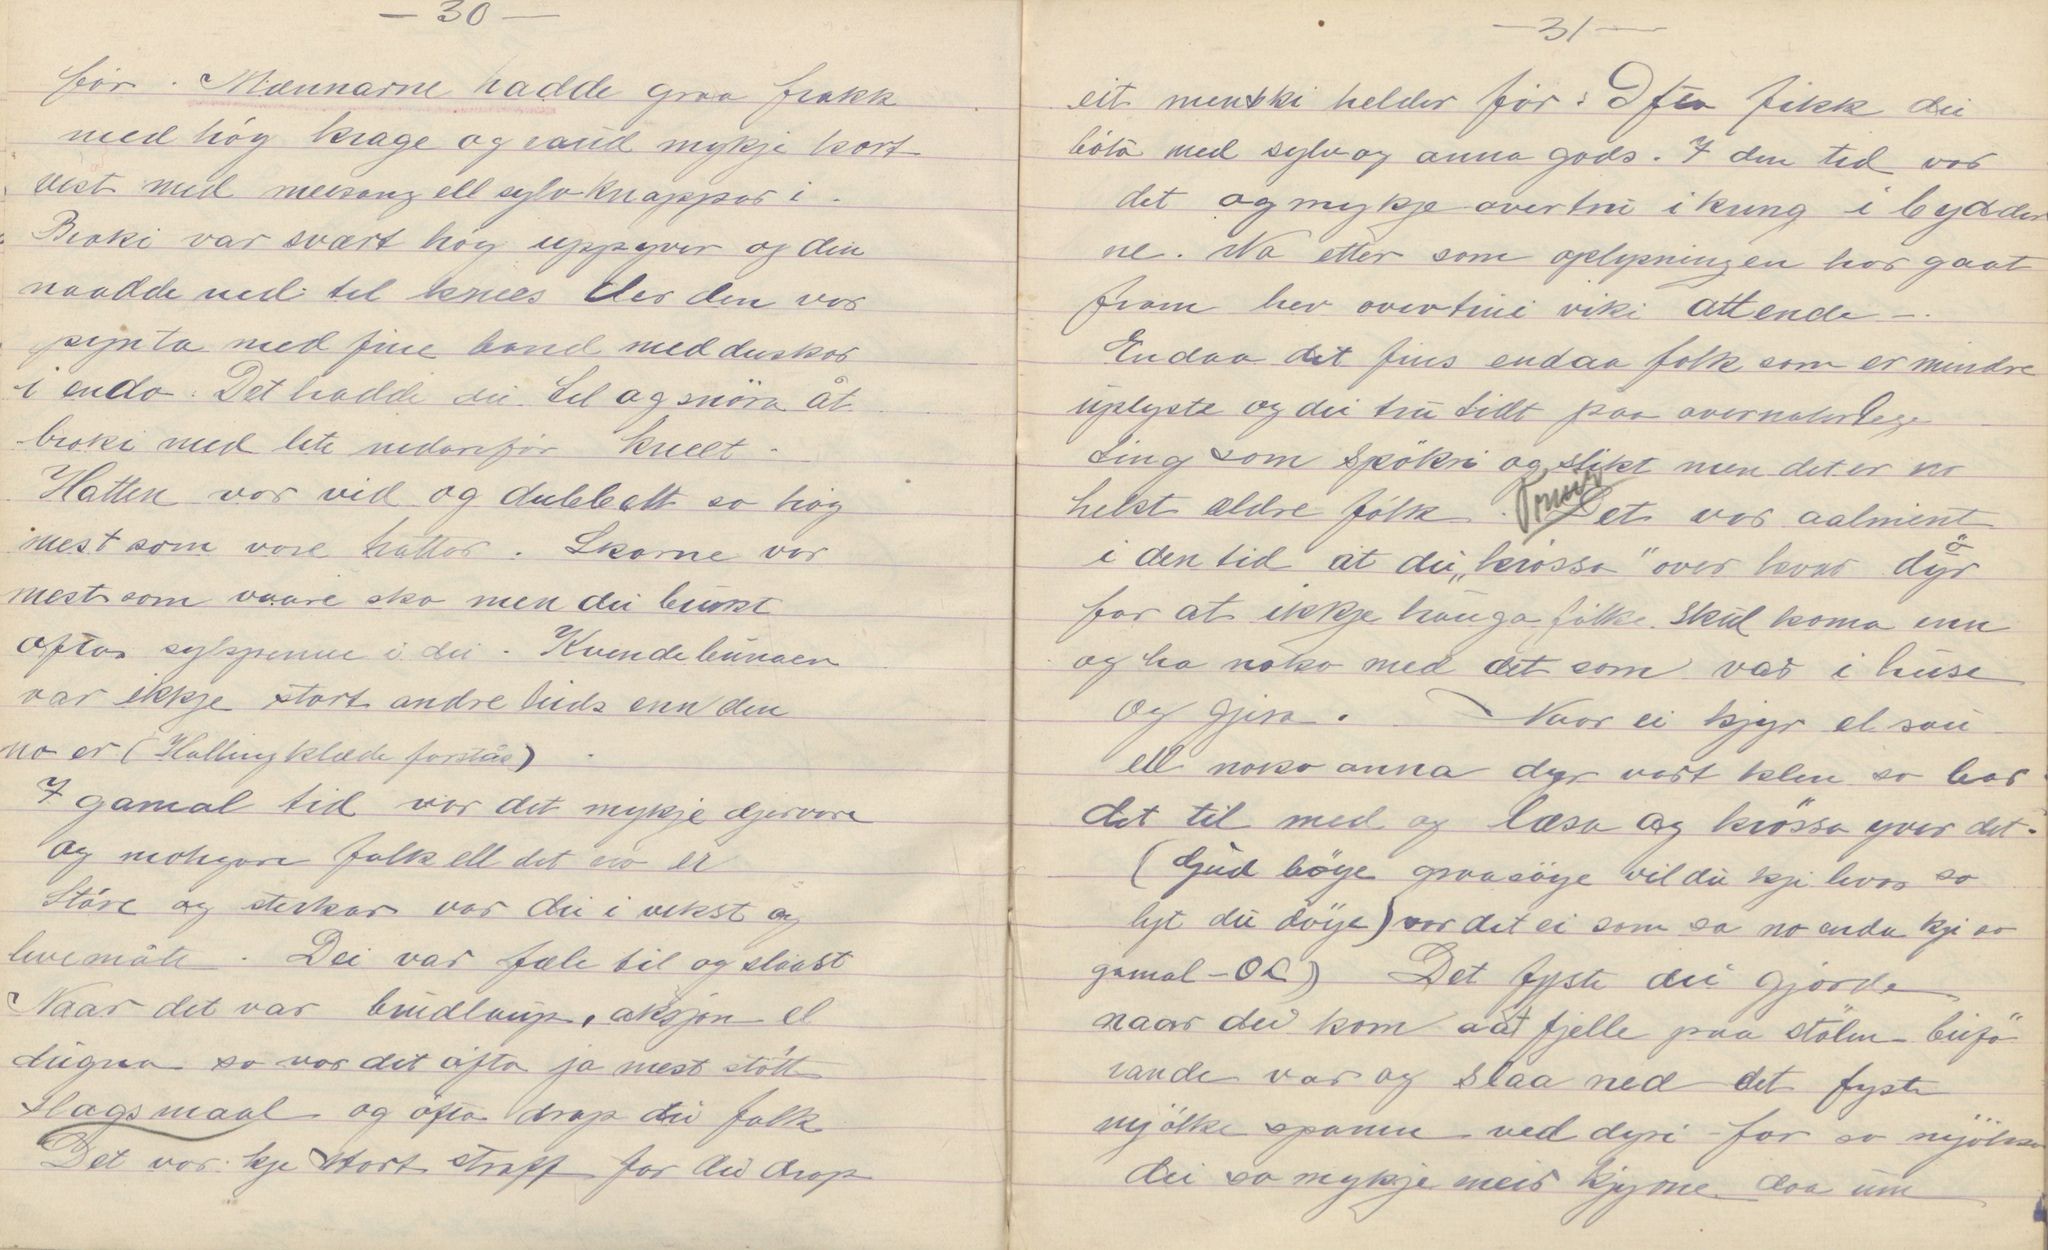 — 30 —
för. Mænnarne hadde graa frakk
med hög krage og raud mykje kort
vest med messang ell sylv knappar i.
Broki var svært hög uppyver og den
naadde ned til knees der den var
pynta med fine band med duskar
i enda. Det hadde dei til og snöra åt
broki med lite nedanför kneet.
Hatten var vid og dubbelt so høg
mest som vore hattar. Skorne var
mest som vaare sko men dei brukt
ofta sylspenne i dei. Kvendebunaen
var ikkje stort andre leids enn den
no er (Hallingklæde forstås)
I gamal tid var det mykje djervare
og modigare folk ell det no er
Störe og sterkar var dei i vekst og
levemåte. Dei var fæle til og slaast
Naar det var brudlaup, aksjon el
dugna so var det ofta ja mest stött
slagsmaal og öfta drap dei folk
Det var kje stort straff for dei drap
— 31 —
eit menski helder för. Ofta fikk dei
böta med sylv og anna gods. I den tid var
det og mykje overtru ikring i bygder
ne. No etter som oplysningen har gaat
fram hev overtrui viki attende —.
Endaa det fins endaa folk som er mindre
uplyste og dei tru tidt paa overnaturlege
ting som spökri og slikt men det er no
helst eldre folk. Det var aalment
i den tid at dei „krossa" over kvar dör
for at ikkje haugafolke skul koma inn
og ha noko med det som var i huse
og gjera. Naar ei kjyr el sau
ell noko anna dyr vart klen so bar
det til med og læsa og krössa yver det.
(Gud böye graasöye vil du kji leva so
lyt du döye) var det ei som sa no enda kji so
gamal — OL) Det fyste dei gjorde
naar dei kom aat fjelle paa stölen bufö
rande var og slaa ned det fyste
mjölke spanne ved dyri for so mjölka
dei so mykje meir kjyrne daa um